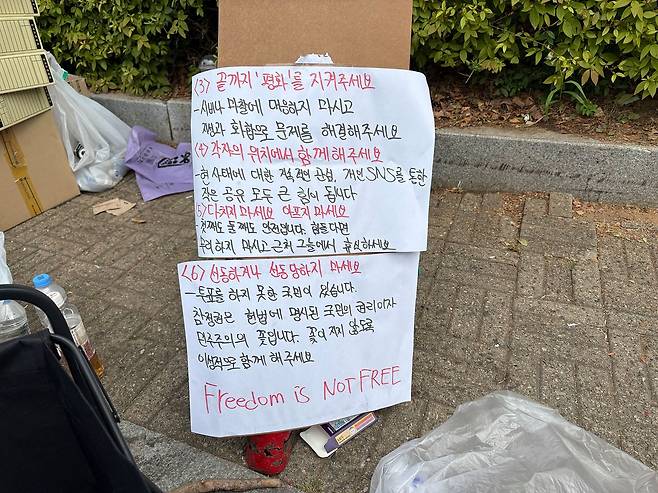 (3) 끝까지 '평화'를 지켜주세요
- 시비나 마찰에 대응하지 마시고
과 화합으로 문제를 해결해주세요
(4) 각자의 위치에서 함께해주세요
- 현 사태에 대한 관심, 개인SNS를 통한
작은 공유 모두 큰 힘이 됩니다
(5) 다치지 마세요 아프지 마세요
- 첫째도 둘째도 안전입니다. 힘들다면
무리하지 마시고 근처 그늘에서 휴식하세요
<6> 선동하거나 선동당하지 마세요
- 투표를 하지 못한 국민이 있습니다.
참정권은 헌법에 명시된 국민의 권리이자
민주주의의 꽃입니다. 꽃이 지지 않도록
이성적으로 함께 해주세요
Freedom is NOT FREE